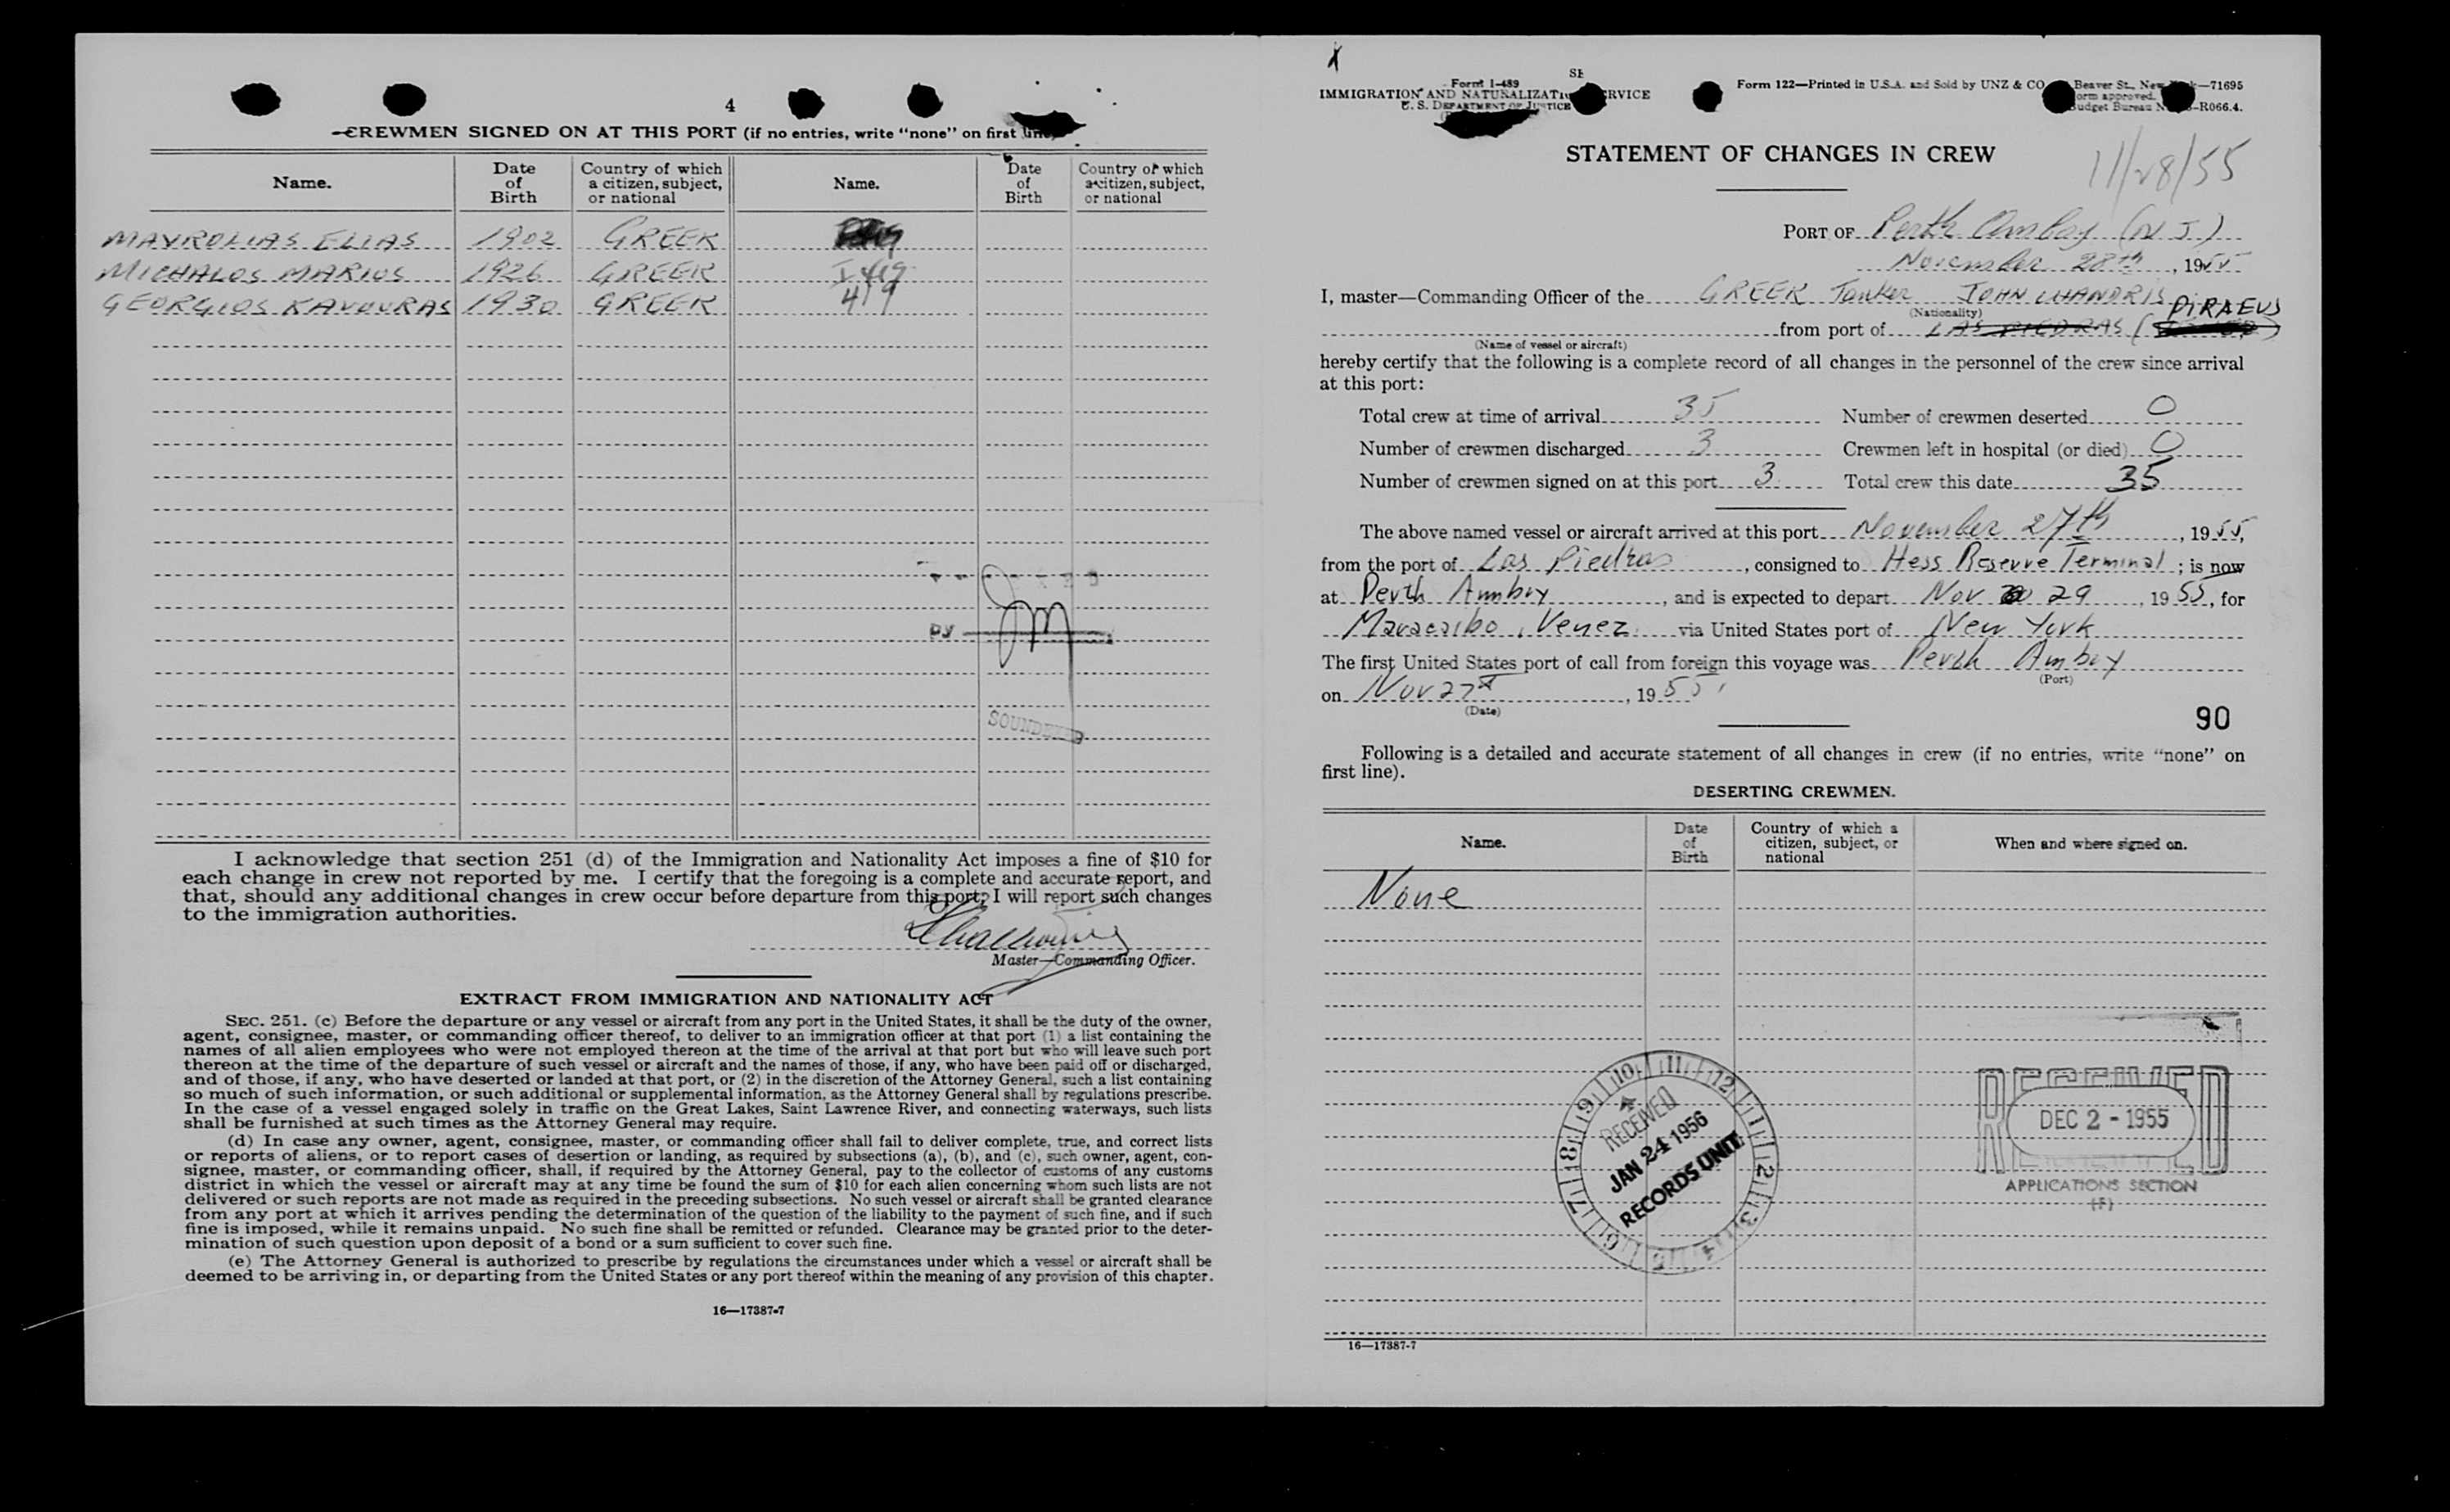 4
CREWMEN SIGNED ON AT THIS PORT (if no entries, write "none" on first line)
Name. Date of Birth Country of which a citizen, subject, or national Name. Date of Birth Country of which a citizen, subject, or national
MAVROLIAS ELIAS 1902 GREEK
MICHALOS MARIOS 1926 GREEK I 419
GEORGIOS KAVOURAS 1930 GREEK 419
by
SOUNDEXED
I acknowledge that section 251 (d) of the Immigration and Nationality Act imposes a fine of $10 for
each change in crew not reported by me. I certify that the foregoing is a complete and accurate report, and
that, should any additional changes in crew occur before departure from this port, I will report such changes
to the immigration authorities.
Master—Commanding Officer.
EXTRACT FROM IMMIGRATION AND NATIONALITY ACT
SEC. 251. (c) Before the departure or any vessel or aircraft from any port in the United States, it shall be the duty of the owner,
agent, consignee, master, or commanding officer thereof, to deliver to an immigration officer at that port (1) a list containing the
names of all alien employees who were not employed thereon at the time of the arrival at that port but who will leave such port
thereon at the time of the departure of such vessel or aircraft and the names of those, if any, who have been paid off or discharged,
and of those, if any, who have deserted or landed at that port, or (2) in the discretion of the Attorney General, such a list containing
so much of such information, or such additional or supplemental information, as the Attorney General shall by regulations prescribe.
In the case of a vessel engaged solely in traffic on the Great Lakes, Saint Lawrence River, and connecting waterways, such lists
shall be furnished at such times as the Attorney General may require.
(d) In case any owner, agent, consignee, master, or commanding officer shall fail to deliver complete, true, and correct lists
or reports of aliens, or to report cases of desertion or landing, as required by subsections (a), (b), and (c), such owner, agent, con-
signee, master, or commanding officer, shall, if required by the Attorney General, pay to the collector of customs of any customs
district in which the vessel or aircraft may at any time be found the sum of $10 for each alien concerning whom such lists are not
delivered or such reports are not made as required in the preceding subsections. No such vessel or aircraft shall be granted clearance
from any port at which it arrives pending the determination of the question of the liability to the payment of such fine, and if such
fine is imposed, while it remains unpaid. No such fine shall be remitted or refunded. Clearance may be granted prior to the deter-
mination of such question upon deposit of a bond or a sum sufficient to cover such fine.
(e) The Attorney General is authorized to prescribe by regulations the circumstances under which a vessel or aircraft shall be
deemed to be arriving in, or departing from the United States or any port thereof within the meaning of any provision of this chapter.
16—17387-7
X
Form I-489
IMMIGRATION AND NATURALIZATION SERVICE
U. S. DEPARTMENT OF JUSTICE
Form 122—Printed in U.S.A. and Sold by UNZ & CO Beaver St., New York—71695
Form approved.
Budget Bureau No. -R066.4.
STATEMENT OF CHANGES IN CREW
11/28/55
PORT OF Perth Amboy (N.J.)
November 28th, 1955
I, master—Commanding Officer of the GREEK Tanker JOHN CHANDRIS
(Nationality) PIRAEUS
from port of LAS PIEDRAS
(Name of vessel or aircraft)
hereby certify that the following is a complete record of all changes in the personnel of the crew since arrival
at this port:
Total crew at time of arrival 35 Number of crewmen deserted 0
Number of crewmen discharged 3 Crewmen left in hospital (or died) 0
Number of crewmen signed on at this port 3 Total crew this date 35
The above named vessel or aircraft arrived at this port November 27th, 1955,
from the port of Las Piedras, consigned to Hess Reserve Terminal; is now
at Perth Amboy, and is expected to depart Nov 29, 1955, for
Maracaibo, Venez. via United States port of New York
The first United States port of call from foreign this voyage was Perth Amboy
(Port)
on Nov 27th, 1955,
(Date)
90
Following is a detailed and accurate statement of all changes in crew (if no entries, write "none" on
first line).
DESERTING CREWMEN.
Name. Date of Birth Country of which a citizen, subject, or national When and where signed on.
None
RECEIVED
JAN 24 1956
RECORDS UNIT
10 11 12 1 2 3 4 5 6 7 8 9
RECEIVED
DEC 2 - 1955
APPLICATIONS SECTION
16—17387-7